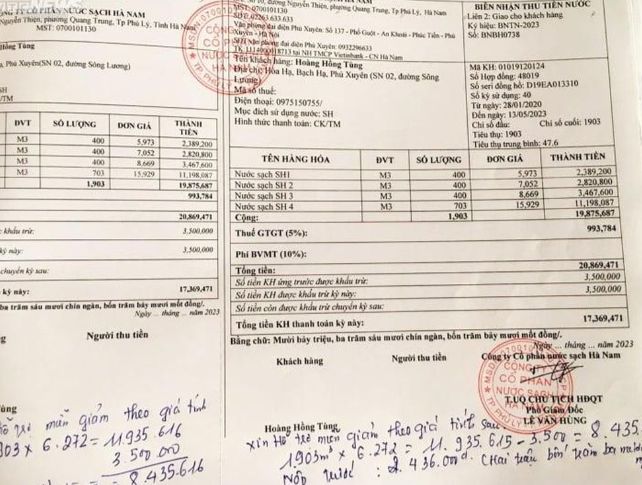 CÔNG TY CỔ PHẦN NƯỚC SẠCH HÀ NAM
Nguyễn Thiện, phường Quang Trung, Tp Phủ Lý, Tỉnh Hà Nam
MST: 0700101130
Hồng Tùng
, Phú Xuyên(SN 02, đường Sông Lương)
SH
CK/TM
ĐVT SỐ LƯỢNG ĐƠN GIÁ THÀNH TIỀN
M3 400 5,973 2,389,200
M3 400 7,052 2,820,800
M3 400 8,669 3,467,600
M3 703 15,929 11,198,087
1,903 19,875,687
993,784
20,869,471
khấu trừ: 3,500,000
kỳ này: 3,500,000
chuyển kỳ sau:
kỳ này: 17,369,471
ba trăm sáu mươi chín ngàn, bốn trăm bảy mươi mốt đồng/.
Ngày ... tháng ... năm 2023
Người thu tiền
Tùng
miễn giảm theo giá tính
1903 x 6.272 = 11.935.616
3.500.000
= 8.435.616
Nguyễn Thiện, phường Quang Trung, Tp Phủ Lý, Hà Nam
MST: 0700101130
SĐT: 02263.633.633
Văn phòng đại diện Phú Xuyên: Số 137 - Phố Guột - An Khoái - Phúc Tiến - Phú Xuyên - Hà Nội
SĐT văn phòng đại diện Phú Xuyên: 0932296633
TK: 1314000018713 tại NH TMCP Vietinbank - CN Hà Nam
Tên khách hàng: Hoàng Hồng Tùng
Địa chỉ: Hòa Hạ, Bạch Hạ, Phú Xuyên(SN 02, đường Sông Lương)
Mã số thuế:
Điện thoại: 0975150755/
Mục đích sử dụng nước: SH
Hình thức thanh toán: CK/TM
BIÊN NHẬN THU TIỀN NƯỚC
Liên 2: Giao cho khách hàng
Ký hiệu: BNTN-2023
Số: BNBH0738
Mã KH: 01019120124
Số Hợp đồng: 48019
Số seri đồng hồ: D19EA013310
Số kỳ sử dụng: 40
Từ ngày: 28/01/2020
Đến ngày: 13/05/2023
Chỉ số đầu: Chỉ số cuối: 1903
Tiêu thụ: 1903
Tiêu thụ trung bình: 47.6
TÊN HÀNG HÓA ĐVT SỐ LƯỢNG ĐƠN GIÁ THÀNH TIỀN
Nước sạch SH1 M3 400 5,973 2,389,200
Nước sạch SH 2 M3 400 7,052 2,820,800
Nước sạch SH 3 M3 400 8,669 3,467,600
Nước sạch SH 4 M3 703 15,929 11,198,087
Cộng: 1,903 19,875,687
Thuế GTGT (5%): 993,784
Phí BVMT (10%):
Tổng tiền: 20,869,471
Số tiền KH ứng trước được khấu trừ: 3,500,000
Số tiền KH được khấu trừ kỳ này: 3,500,000
Số tiền còn được khấu trừ chuyển kỳ sau:
Tổng tiền KH thanh toán kỳ này: 17,369,471
Bằng chữ: Mười bảy triệu, ba trăm sáu mươi chín ngàn, bốn trăm bảy mươi mốt đồng/.
Ngày ... tháng ... năm 2023
Khách hàng Người thu tiền Công ty Cổ phần nước sạch Hà Nam
CÔNG TY
CỔ PHẦN
NƯỚC SẠCH
HÀ NAM
T.UQ CHỦ TỊCH HĐQT
Phó Giám Đốc
LÊ VĂN HÙNG
Hoàng Hồng Tùng
xin hỗ trợ miễn giảm theo giá tính sau
1.903m³ x 6.272 = 11.935.615 - 3.500 = 8.435.
Nộp trước: 2.436.000đ (Hai triệu bốn trăm ba mươi